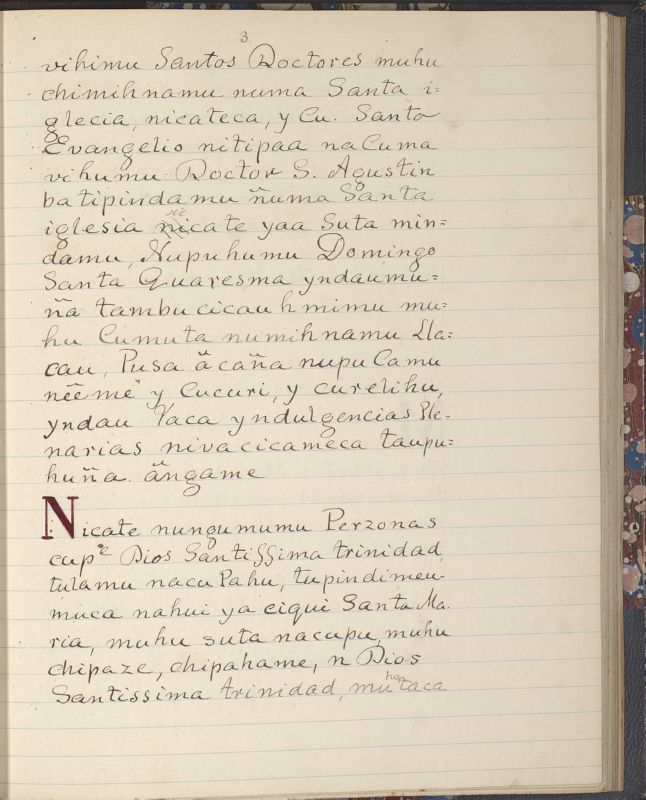 3
vihimu Santos Doctores muhu
chimihnamu numa Santa i=
glecia, nicateca, y Cu. Santo
Evangelio nitipaa na Cuma
vihumu Doctor S. Agustin
batipindamu ñuma Santa
iglesia nicate yaa Suta min=
damu, Nupuhumu Domingo
Santa Quaresma yndaumu=
ña tambucicauhmimu mu=
hu Cumuta numihnamu Lla=
cau, Pusa äcaña nupu Camu
nëëmë y Cucuri, y curelihu,
yndau Yaca yndulgencias Ple=
narias nivacicameca taupu=
huña. ängame
Nicate nungumumu Perzonas
cup.e Dios Santissima trinidad,
tulamu nacu Pahu, tupindimeu
muca nahui ya ciqui Santa Ma.
ria, muhu suta nacupu, muhu
chipaze, chipahame, n Dios
Santissima trinidad, muhantaca